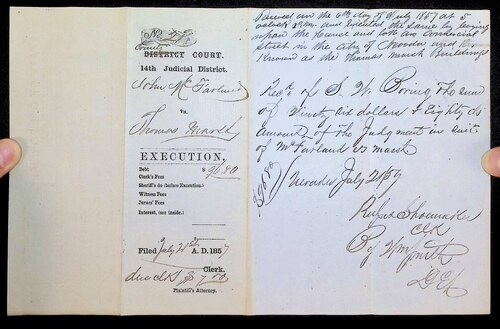 No
County
DISTRICT COURT.
14th Judicial District.
John McFarland
vs.
Thomas Marsh
EXECUTION.
Debt $ 96.80
Clerk's Fees
Sheriff's do (before Execution.)
Witness Fees
Jurors' Fees
Interest, (see inside.)
Filed July 21st A. D. 1857
Clerk.
due clk $ 7.50
Plaintiff's Attorney.
the 6th day of July 1857 at 5
oclock P.M. and Executed the same by levying
upon the House and lot on Commercial
street in the city of Nevada and
Known as the Thomas Marsh Building
Recd of S. W. the sum
of Ninety Six dollars & Eighty cts
amount of the Judgment in suit
of McFarland vs Marsh
$96.80
Nevada July 21 57
Rufus Shoemaker
Clk
By Wm Smith